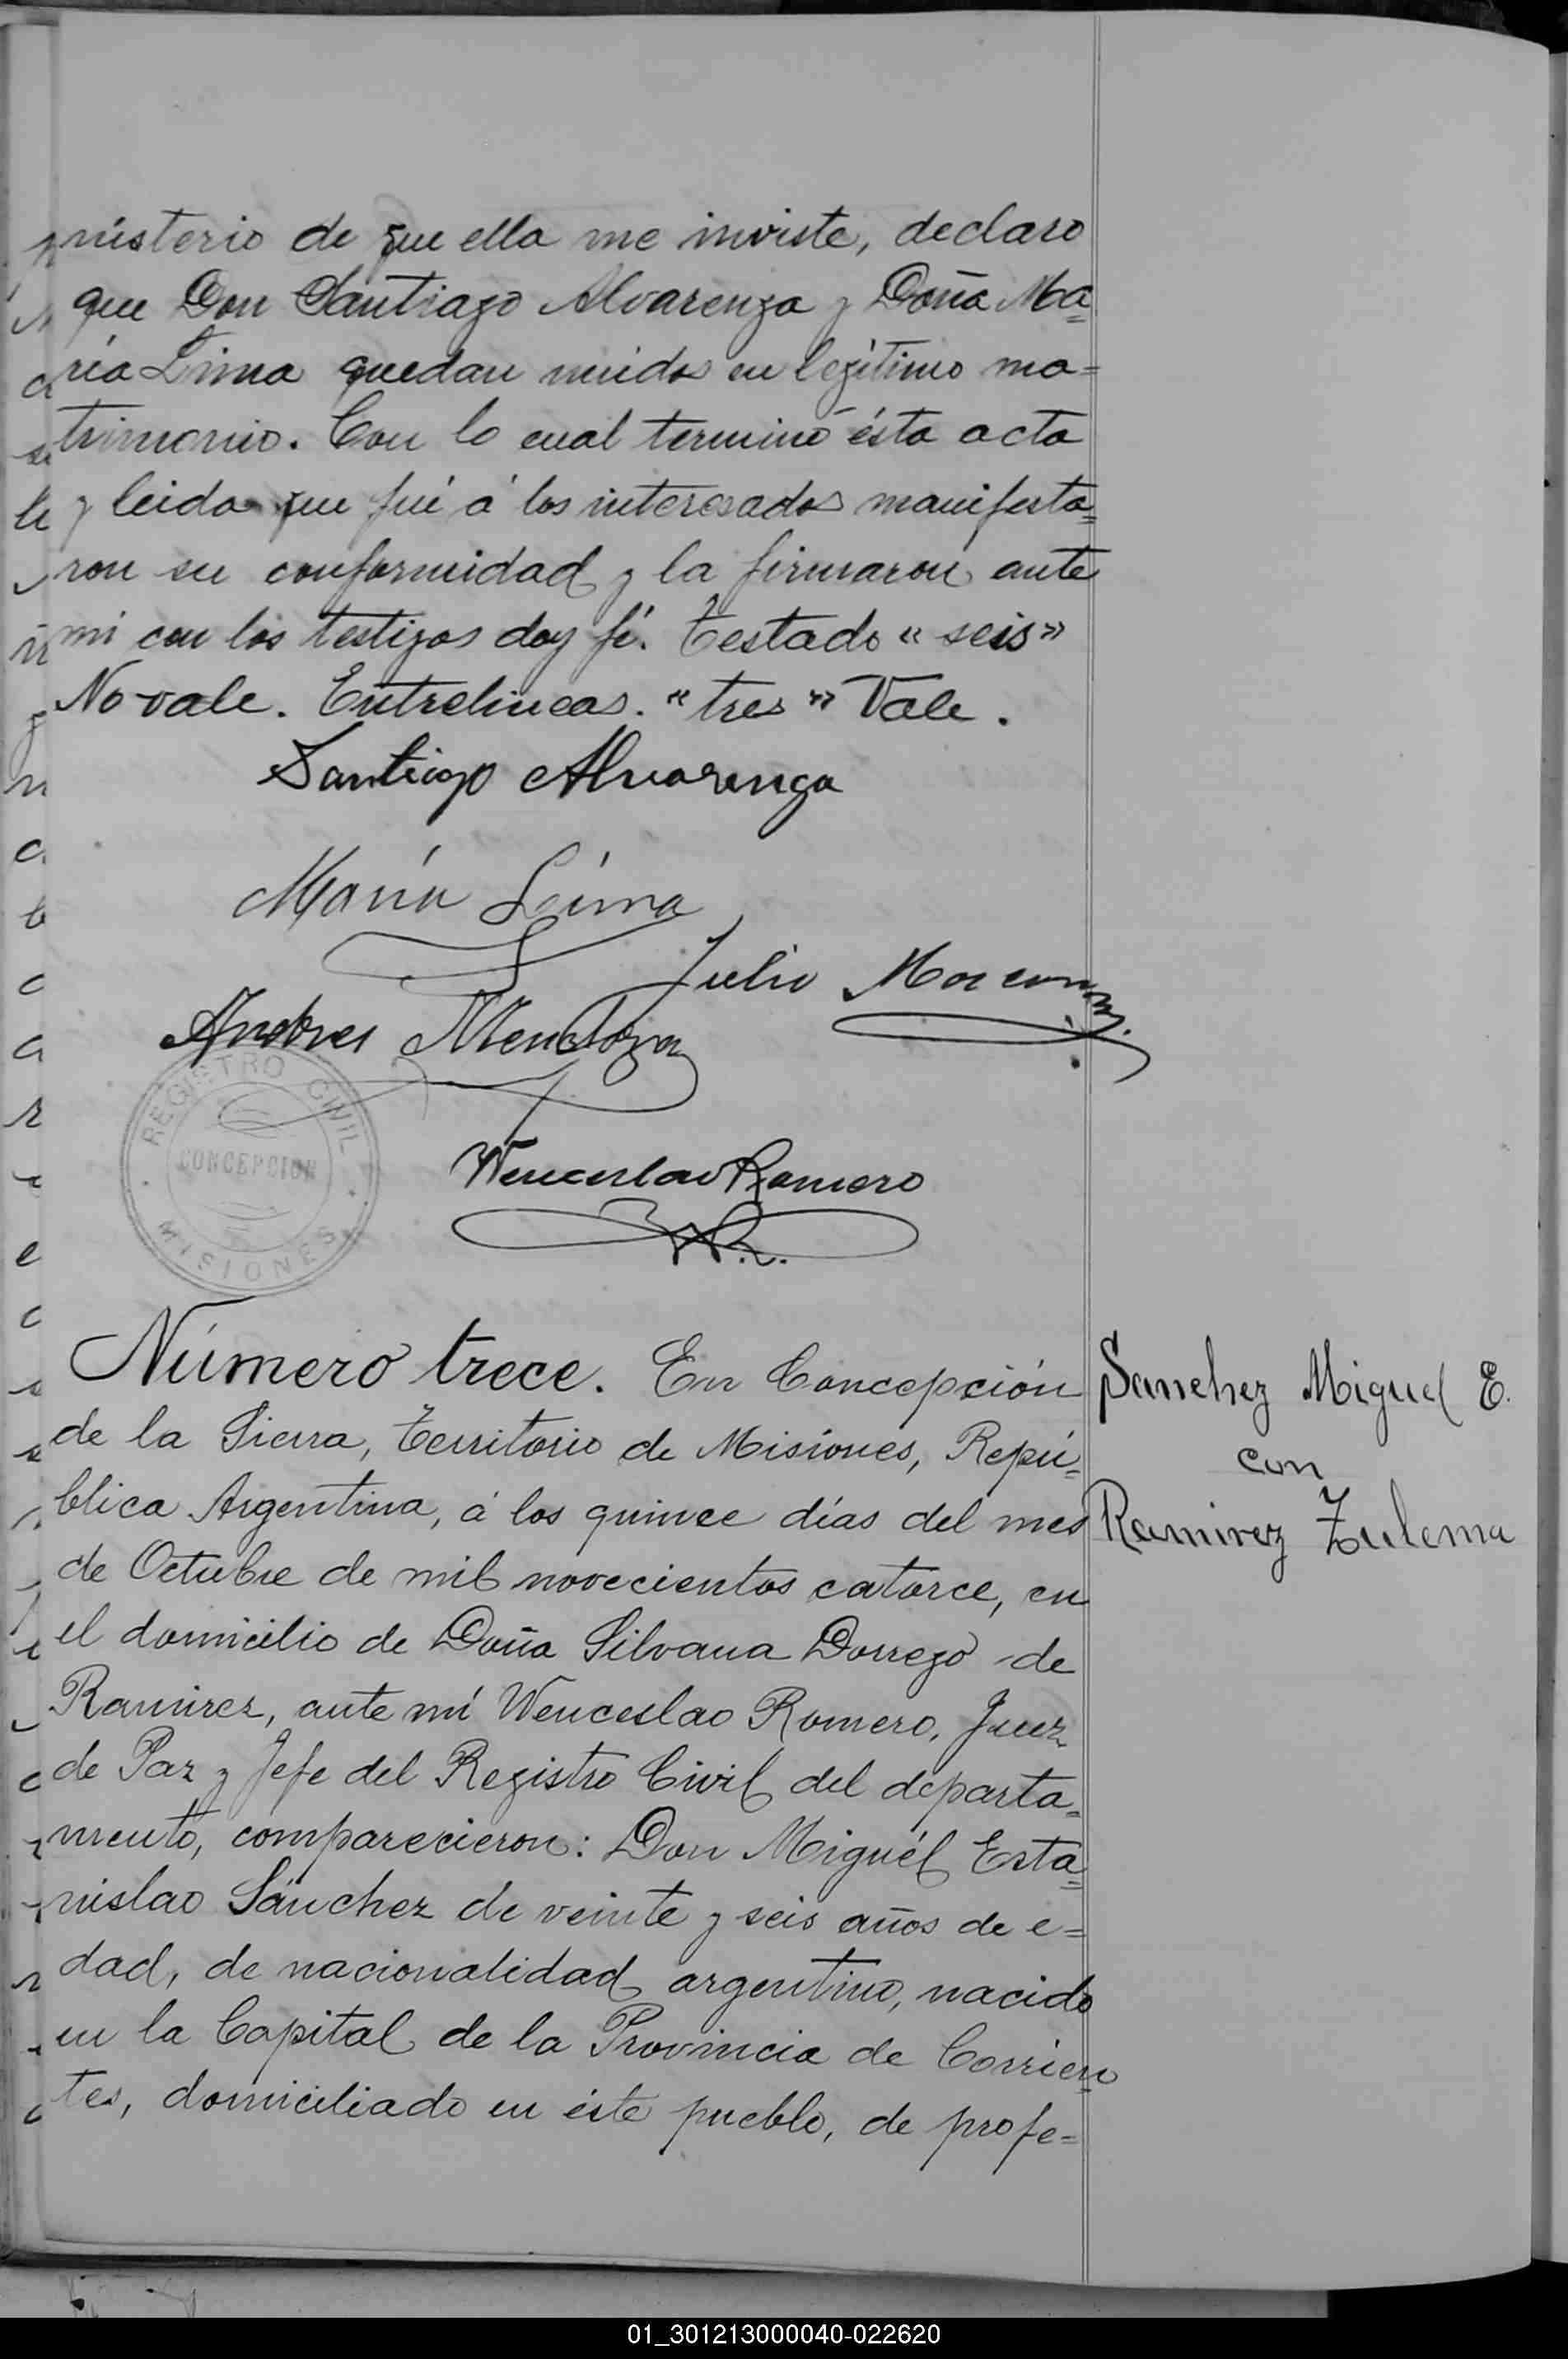 nisterio de que ella me inviste, declaro
que Don Santiago Alvarenga y Doña Ma=
ría Lima quedan unidos en legítimo ma=
trimonio. Con lo cual terminó ésta acta
y leida que fué á los interesados manifesta=
ron su conformidad y la firmaron ante
mi con los testigos doy fé. Testado "seis"
No vale. Entrelineas. "tres" Vale.
Santiago Alvarenga
María Lima
Julio
Andres Mendoza
REGISTRO CIVIL
CONCEPCION
MISIONES
Wenceslao Romero
W.R.
Número trece. En Concepción
de la Sierra, Territorio de Misiones, Repú=
blica Argentina, á los quince días del mes
de Octubre de mil novecientos catorce, en
el domicilio de Doña Silvana Dorrego de
Ramirez, ante mí Wenceslao Romero, Juez
de Paz y Jefe del Registro Civil del departa=
mento, comparecieron: Don Miguél Esta=
nislao Sánchez de veinte y seis años de e=
dad, de nacionalidad argentino, nacido
en la Capital de la Provincia de Corrien=
tes, domiciliado en éste pueblo, de profe=
Sanchez Miguel E.
con
Ramirez Zulema
01_301213000040-022620